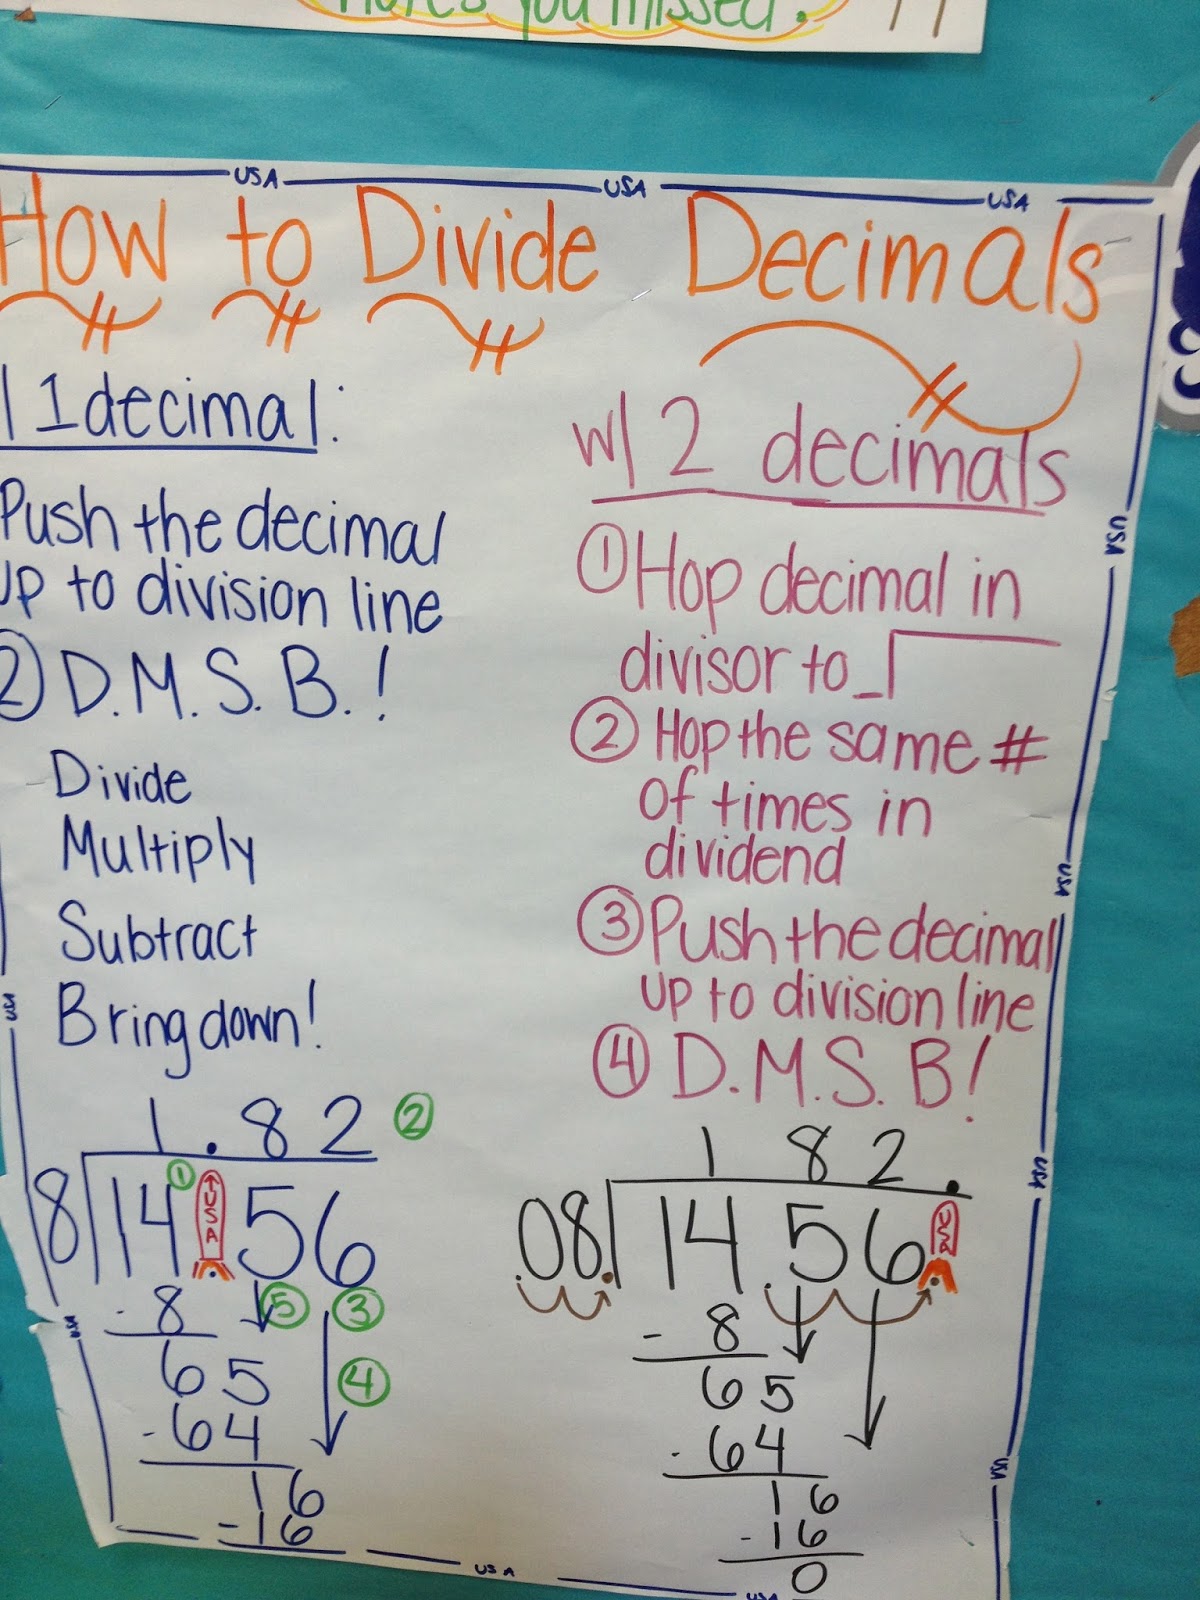 Notes you missed.
USA USA USA
How to Divide Decimals
1 decimal:
Push the decimal
up to division line
② D.M.S.B.!
Divide
Multiply
Subtract
Bring down!
1.82 ②
8 14 ① USA . 56
- 8 ⑤ ③
65 ④
- 64
16
- 16
w/ 2 decimals
① Hop decimal in
divisor to _
② Hop the same #
of times in
dividend
③ Push the decimal
up to division line
④ D.M.S.B!
1 82.
.08. 14.56 USA .
- 8
65
- 64
16
- 16
0
USA
USA
USA
USA
USA
USA
USA
USA